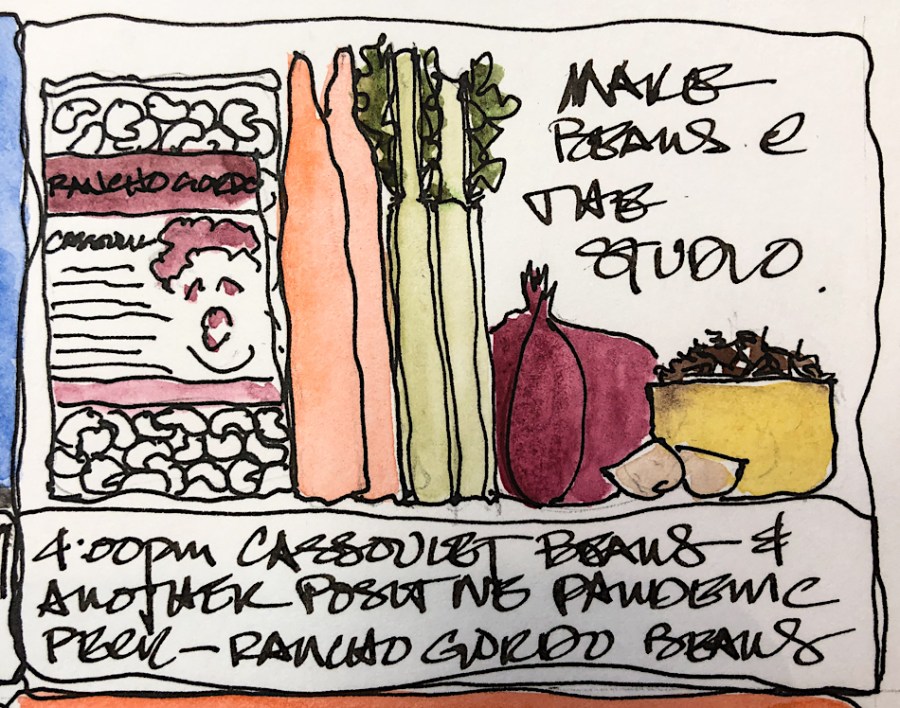 MAKE
BEANS @
THE
STUDIO.
RANCHO GORDO
CASSOULET
4:00pm CASSOULET BEANS &
ANOTHER POSITIVE PANDEMIC
PERK - RANCHO GORDO BEANS